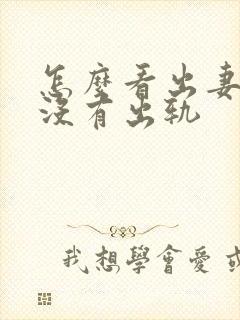 怎麼看出妻
沒有出軌
我想學會愛